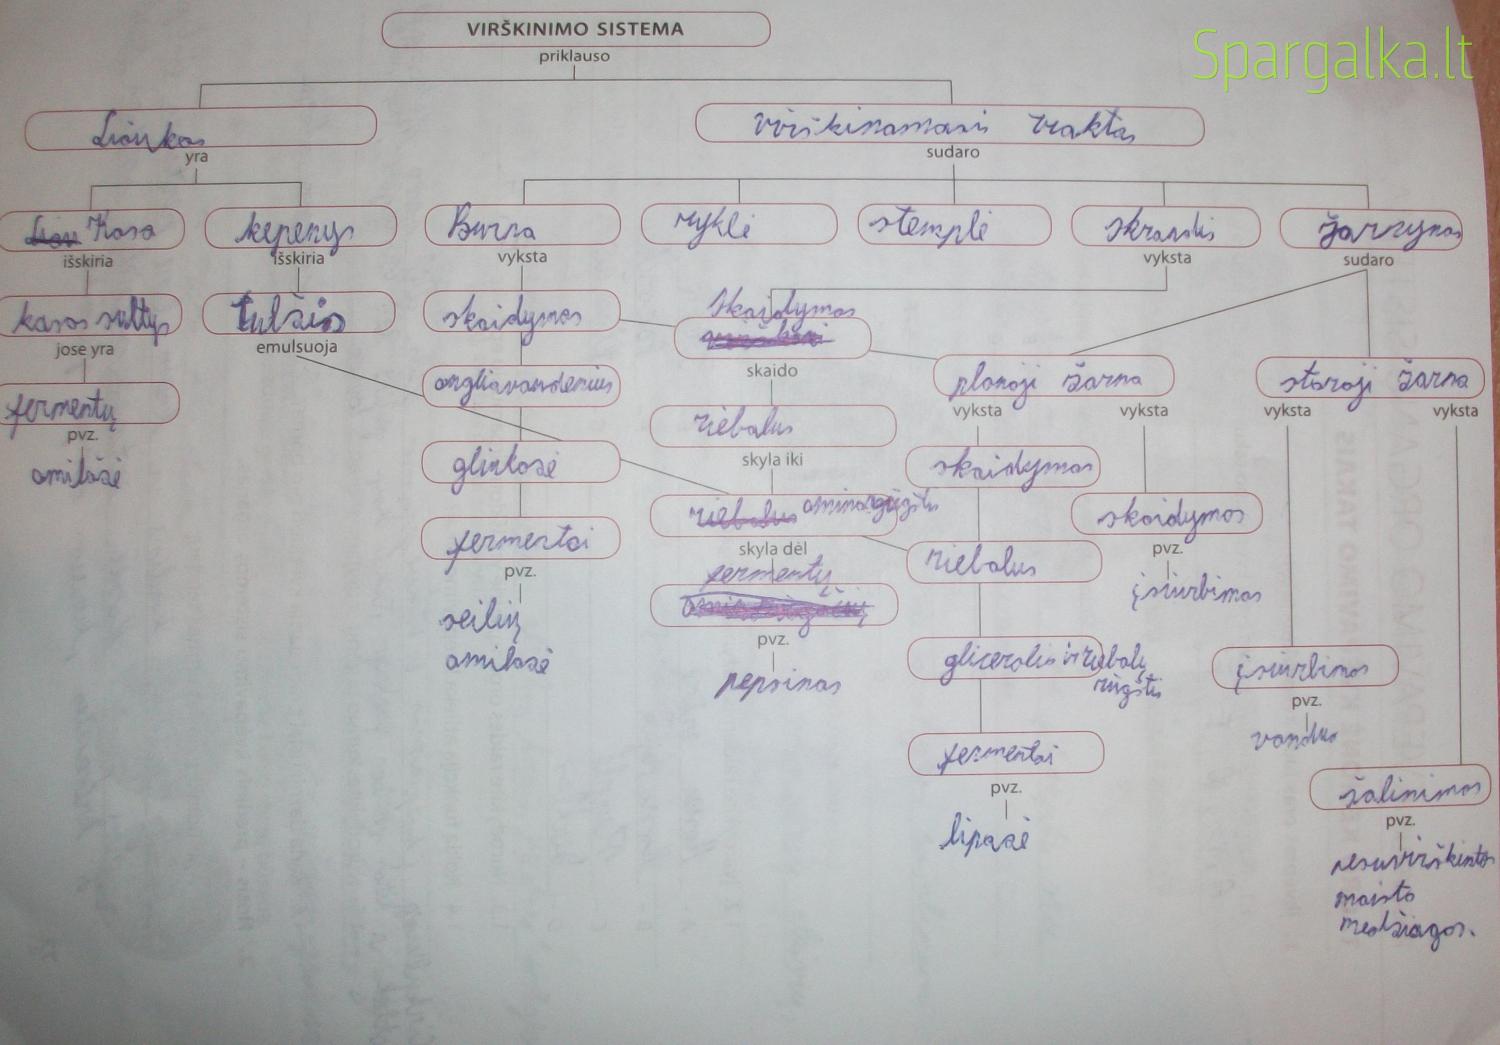 VIRŠKINIMO SISTEMA
Spargalka.lt
priklauso
Liaukos
virškinamasis traktas
yra
sudaro
Kasa
kepenys
Burna
ryklė
stemplė
skrandis
žarnynas
išskiria
išskiria
vyksta
vyksta
sudaro
kasos sultys
tulžis
skaidymas
Skaidymas
jose yra
emulsuoja
skaido
fermentų
angliavandenius
plonoji žarna
storoji žarna
pvz.
vyksta
vyksta
vyksta
vyksta
amilazė
gliukozė
riebalus
skyla iki
skaidymas
fermentai
riebalus aminorūgštis
skaidymas
pvz.
skyla dėl
riebalus
pvz.
seilių
amilazė
fermentų
įsiurbimas
pvz.
pepsinas
glicerolis ir riebalų
rūgštis
įsiurbimas
pvz.
vanduo
fermentai
pvz.
lipazė
šalinimas
pvz.
nesuvirškintos
maisto
medžiagos.